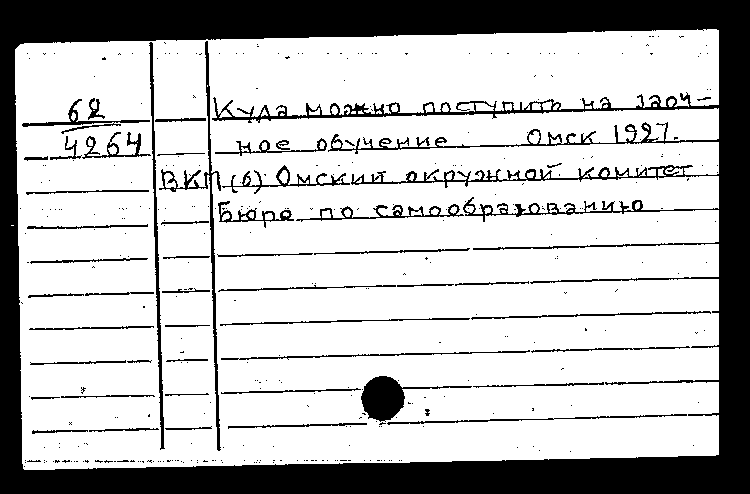 62
4264
Куда можно поступить на заоч-
ное обучение. Омск 1927.
ВКП(б) Омский окружной комитет.
Бюро по самообразованию